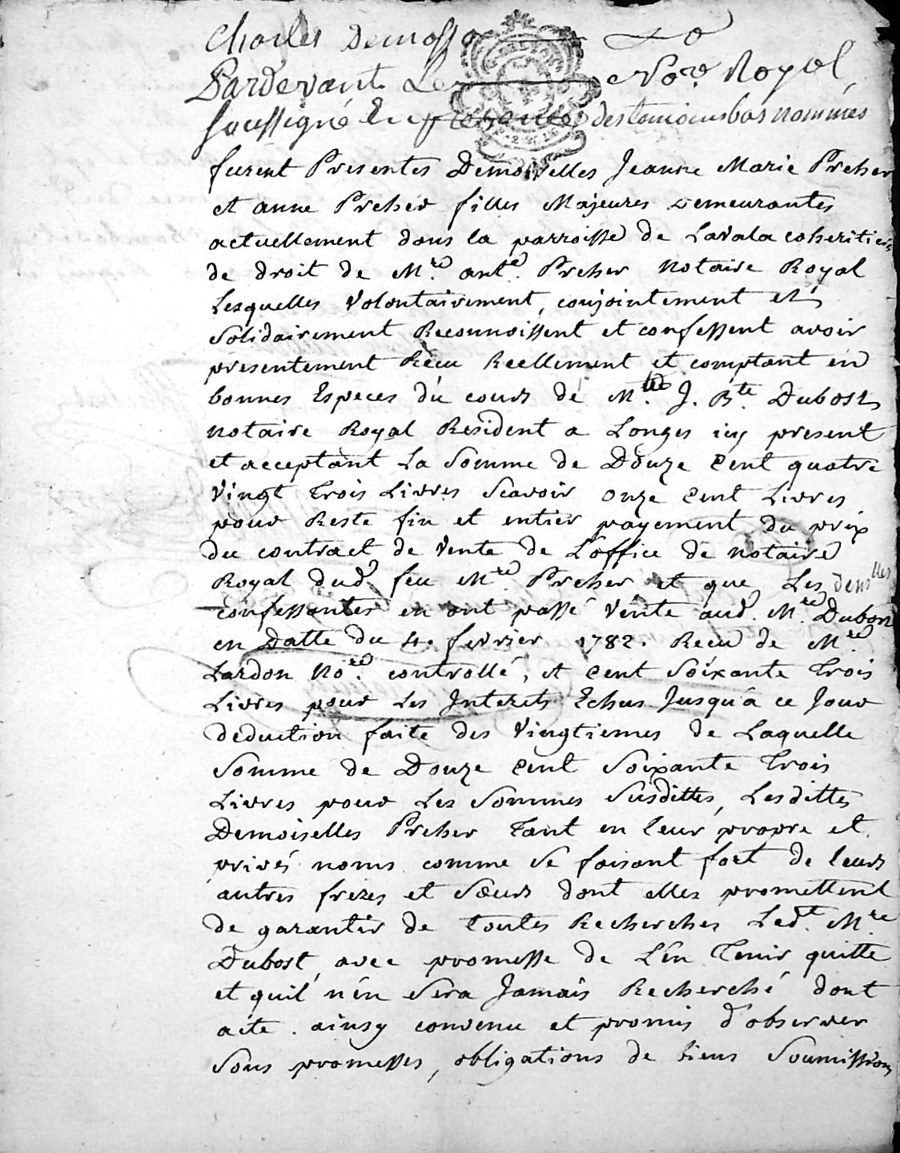 Charles Demossa
Pardevant Le Nore Royal
Soussigné En presence des temoins bas nommés
furent Presentes Demoiselles Jeanne Marie Preher
et anne Preher filles Majeures Demeurantes
actuellement dans la parroisse de Lavala coheritieres
de droit de Mre. ante. Preher Notaire Royal
Lesquelles Volontairement, conjointement et
Solidairement Reconnoissent et confessent avoir
presentement Recu Reellement et comptant en
bonnes Especes du cours de Mtre. J. Bte. Dubost
Notaire Royal Resident a Longes icy present
et acceptant La Somme de Douze Cent quatre
Vingt Trois Livres Scavoir onze Cent Livres
pour Reste fin et entier payement du prix
du contract de Vente de L'office de Notaire
Royal dud. feu Mre Preher et que Les denslles
confessantes en ont passé Vente aud. Mre. Dubost
en Datte du 4. fevrier 1782. Recu de Mre
Lardon Nore. controllé, et Cent Soixante Trois
Livres pour Les Interets Echus Jusqu'a ce Jour
deduction faite des Vingtiemes de Laquelle
Somme de Douze Cent Soixante Trois
Livres pour Les Sommes Susdittes, Lesdettes
Demoiselles Preher Tant en leur propre et
privés noms comme Se faisant fort de leurs
autres freres et Sœurs dont elles promettent
de garantir de toutes Recherches Ledt. Mre
Dubost, avec promesse de L'en Tenir quitte
et quil n'en Sera Jamais Recherché dont
acte. ainsy convenu et promis d'observer
Sous promesses, obligations de biens Soumissions